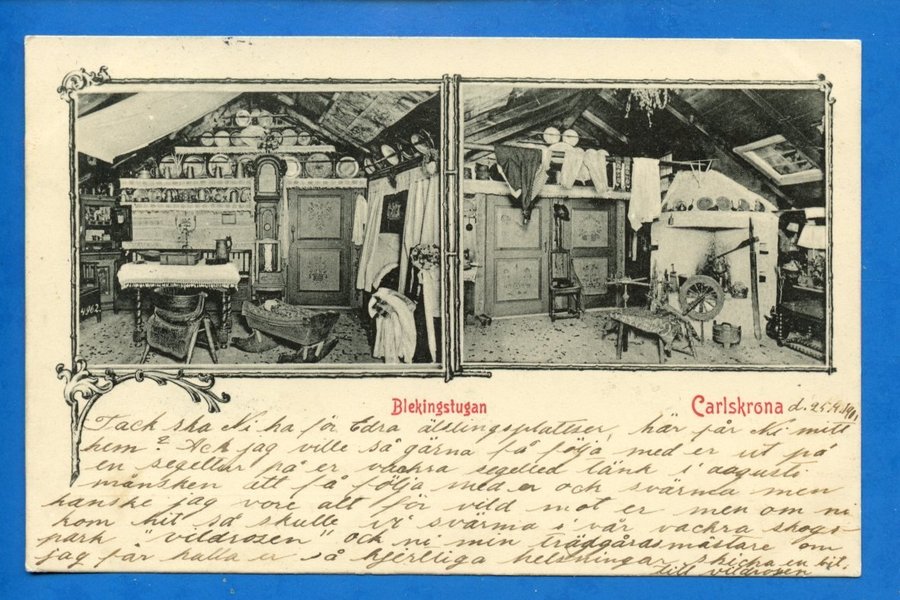 Blekingstugan
Carlskrona d. 25/4 1901
Tack ska Ni ha för Edra älsklingsplatser, här får Ni mitt
hem? Ack jag ville så gärna få följa med er ut på
en segeltur på er vackra segelled tänk i augusti
månsken att få följa med er och svärma men
kanske jag vore allt för vild mot er men om ni
kom hit så skulle vi svärma i vår vackra skogs
park "vildrosen" och ni min trädgårdsmästare om
jag får kalla er så hjertliga helsningar skicka en bit.
till vildrosen